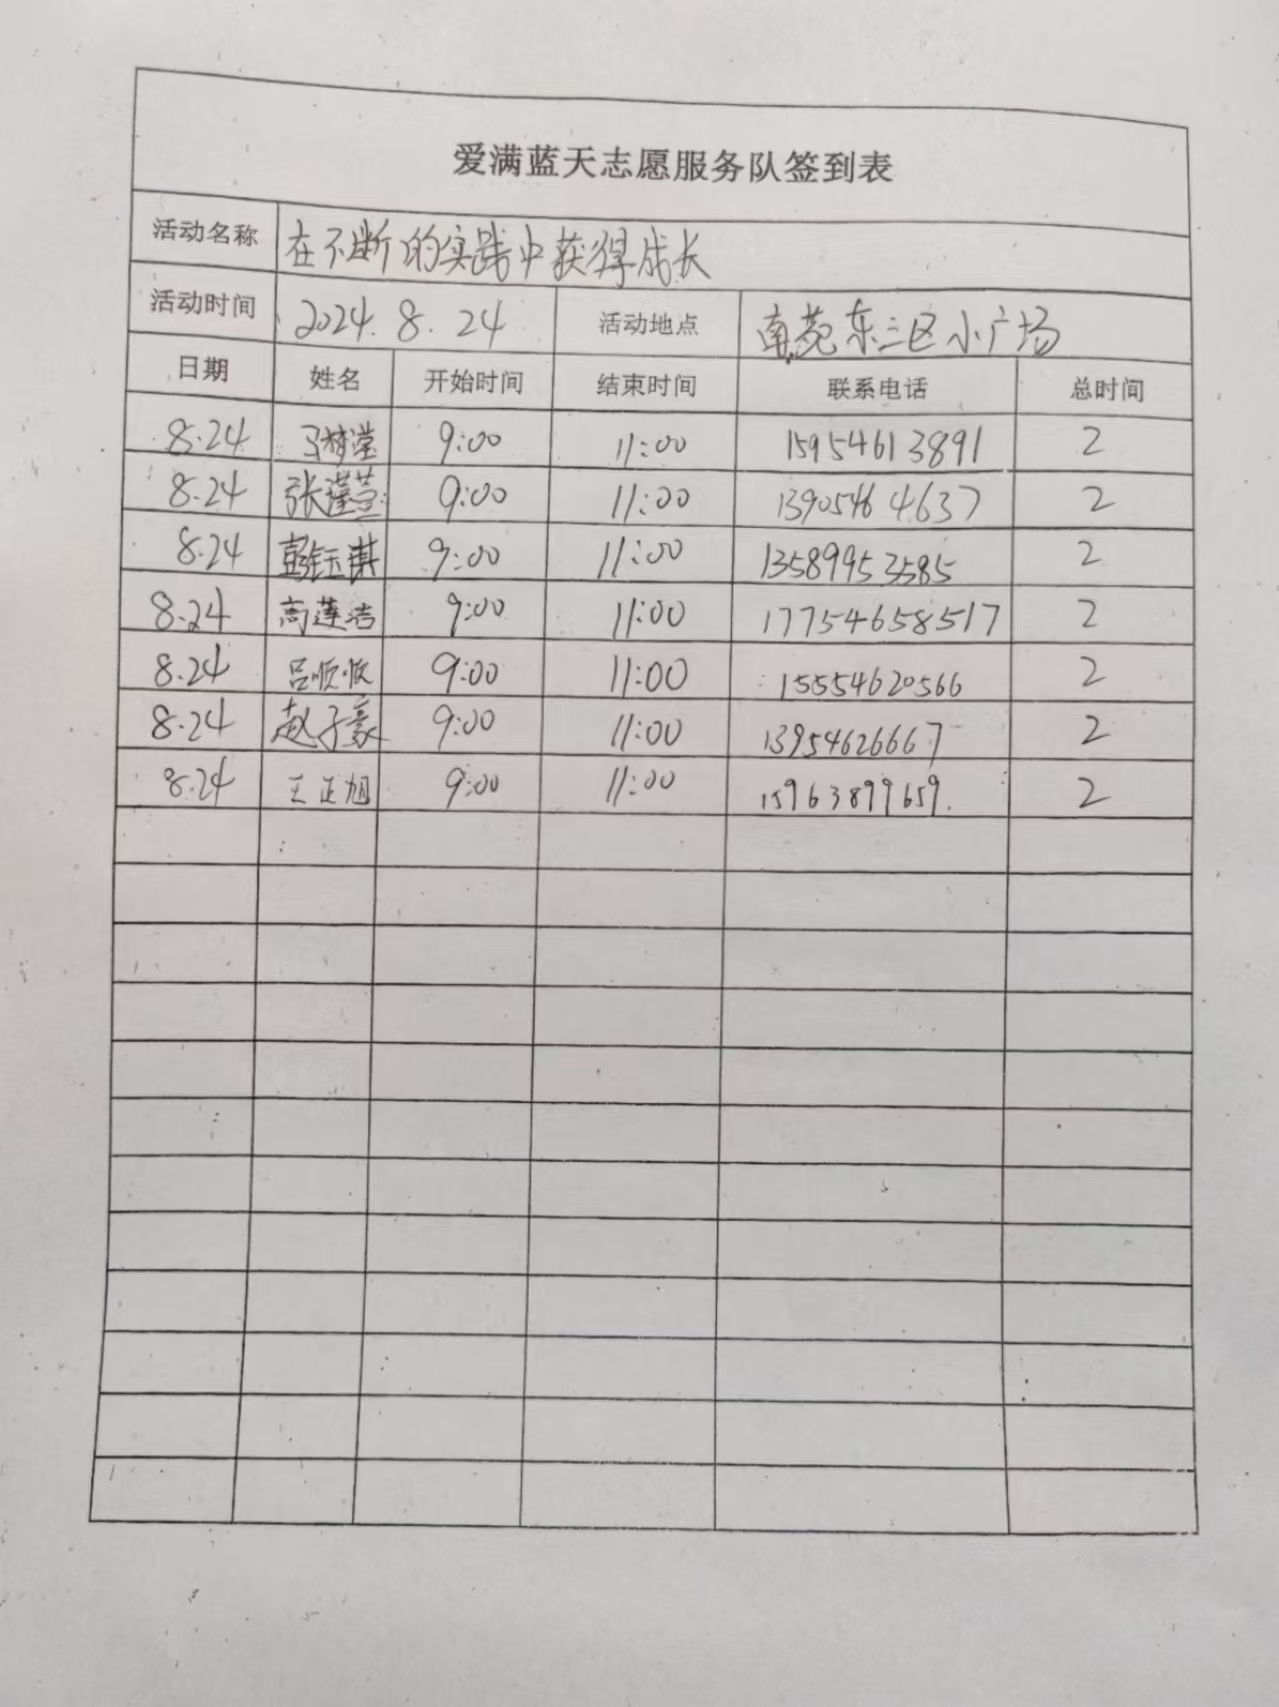 爱满蓝天志愿服务队签到表
活动名称 在不断的实践中获得成长
活动时间 2024.8.24 活动地点 南苑东三区小广场
日期 姓名 开始时间 结束时间 联系电话 总时间
8.24 马梦滢 9:00 11:00 15954613891 2
8.24 张滢萱 9:00 11:00 13905464637 2
8.24 彭钰琪 9:00 11:00 13589953585 2
8.24 高莲洁 9:00 11:00 17754658517 2
8.24 吕顺顺 9:00 11:00 15554620566 2
8.24 赵子豪 9:00 11:00 13954626667 2
8.24 王正旭 9:00 11:00 15963899659. 2